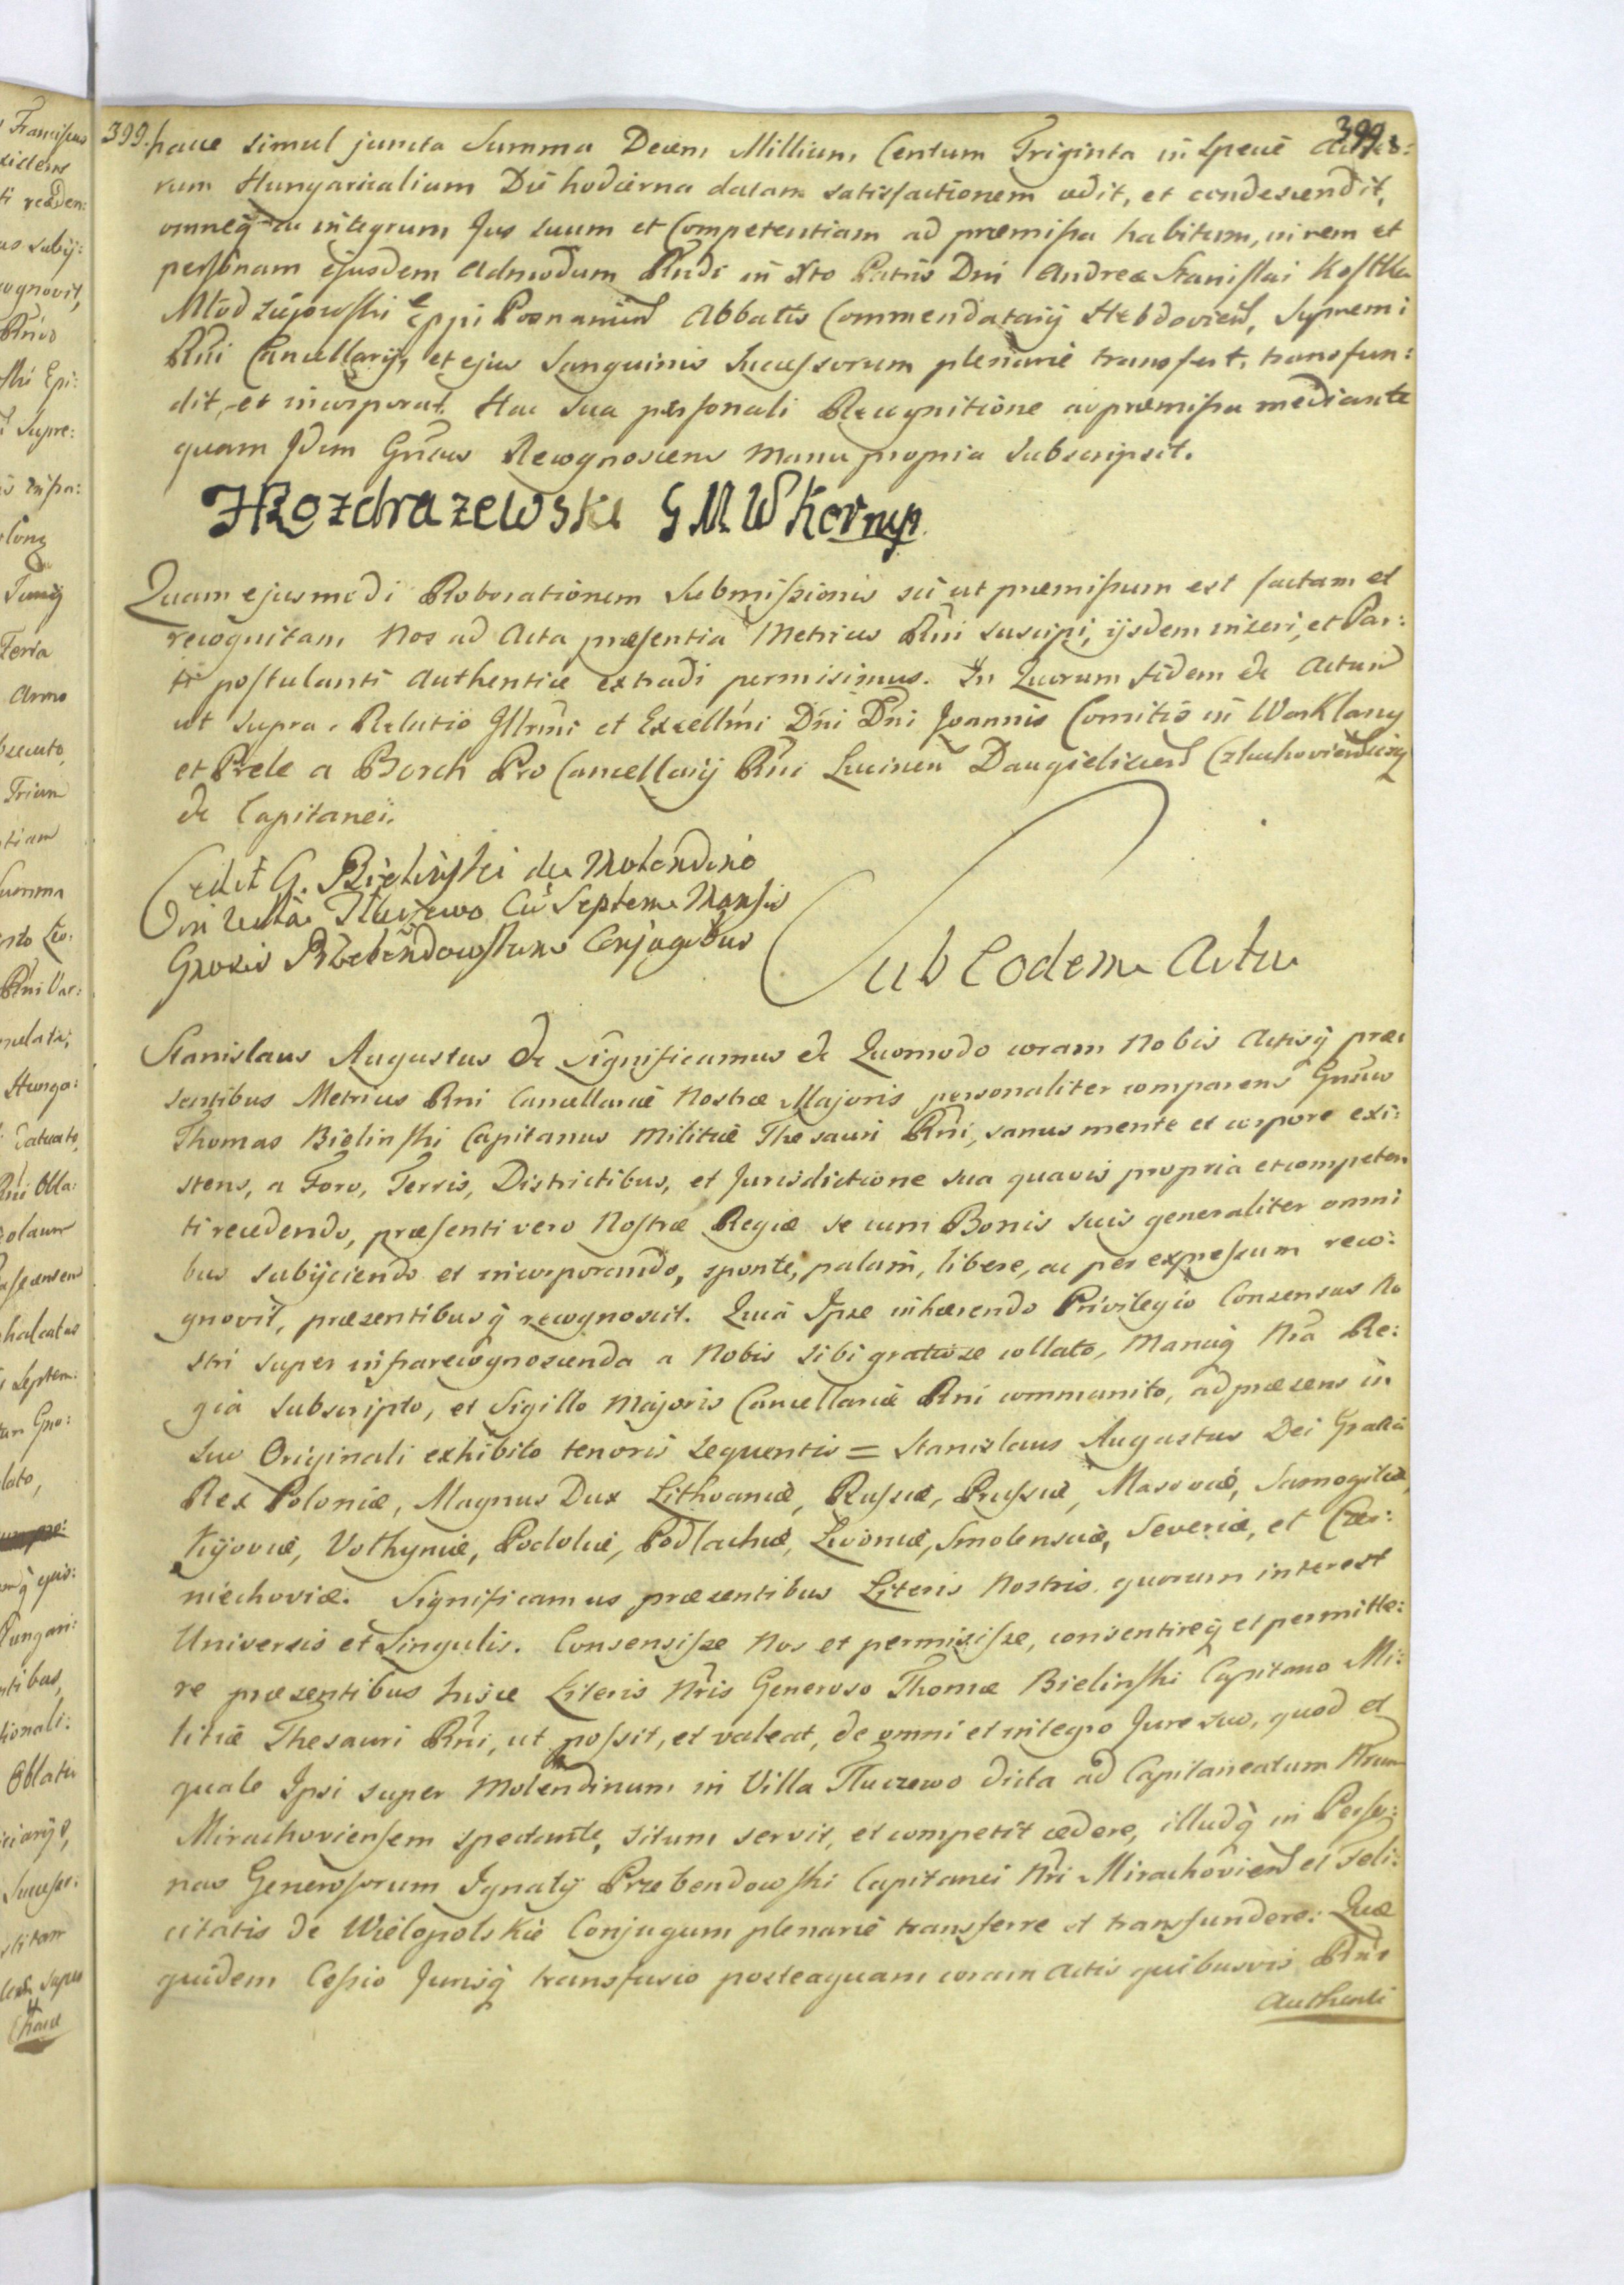 399.
399.
hacce simul juncta Summa Decem Millium Centum Triginta in specie
rum Hungaricalium Die hodierna datam satisfactionem cedit, et condescendit,
omneq ac integrum Jus suum et Competentiam ad præmissa habitum, in rem et
personam ejusdem Admodum Rndi in Xto Patris Dni Andreæ Stanislai Kostka
Młodziejowski Eppi Posnanien Abbatis Commendatarij Hebdovien, Supremi
Rni Cancellarij, et ejus Sanguinis Successorum plenarie transfert, transfun:
dit, et incorporat. Hac sua personali Recognitione ad præmissa mediante
quam Idem Gnsus Recognoscens Manu propria subscripsit.
Rozdrazewski G M W Kor mp
Quam ejusmodi Roborationem Submissionis sic ut præmissum est factam et
recognitam Nos ad Acta præsentia Metrices Rni suscipi, ijsdem inseri, et Par:
ti postulanti Authentice extradi permisimus. In Quorum fidem &c Actum
ut supra. Relatio Illrmi et Excellmi Dni Dni Joannis Comitis in Warklany
et Prele a Borch Pro Cancellarij Rni Lucinen Daugielicen
&c Capitanei.
Cedit G. Bielinski de Molendino
in Villa Tłuczewo cu Septem Mansis
Gnosis Przebendowskims Conjugibus
Sub Eodem Actu
Stanislaus Augustus &c Significamus &c Quomodo coram Nobis Actisq præ
sentibus Metrices Rni Cancellariæ Nostræ Majoris personaliter comparens Gnsus
Thomas Bielinski Capitanus Militiæ Thesauri Rni, sanus mente et corpore exi:
stens, a Foro, Terris, Districtibus, et Jurisdictione sua quavis propria et competen
ti recedendo, præsenti vero Nostræ Regiæ se cum Bonis suis generaliter omni
bus subijciendo et incorporando, sponte, palam, libere, ac per expressum reco:
gnovit, præsentibusq recognoscit. Quia Ipse inhærendo Privilegio Consensus No
stri super infrarecognoscenda a Nobis sibi gratiose collato, Manuq Nra Re:
gia subscripto, et Sigillo Majoris Cancellariæ Rni communito, ad præsens in
suo Originali exhibito tenoris sequentis = Stanislaus Augustus Dei Gratia
Rex Poloniæ, Magnus Dux Lithvaniæ, Russiæ, Prussiæ, Masoviæ, Samogitiæ,
Kijoviæ, Volhyniæ, Podoliæ, Podlachiæ, Livoniæ, Smolensciæ, Severiæ, et Czer:
niechoviæ. Significamus præsentibus Literis Nostris quorum interest
Universis et Singulis. Consensisse Nos et permisisse, consentireq et permitte:
re præsentibus hisce Literis Nris Generoso Thomæ Bielinski Capitano Mi:
litiæ Thesauri Rni, ut possit, et valeat, de omni et integro Jure suo, quod et
quale Ipsi super Molendinum in Villa Tłuczewo dicta ad Capitaneatum Nrum
Mirachoviensem spectante, situm servit, et competit cedere, illudq in Perso:
nas Generosorum Ignatij Przebendowski Capitanei Nri Mirachovien et Feli:
citatis de Wielopolskie Conjugum plenarie transferre et transfundere: Quæ
quidem Cessio Jurisq transfusio posteaquam coram Actis quibusvis Rni
Authenti